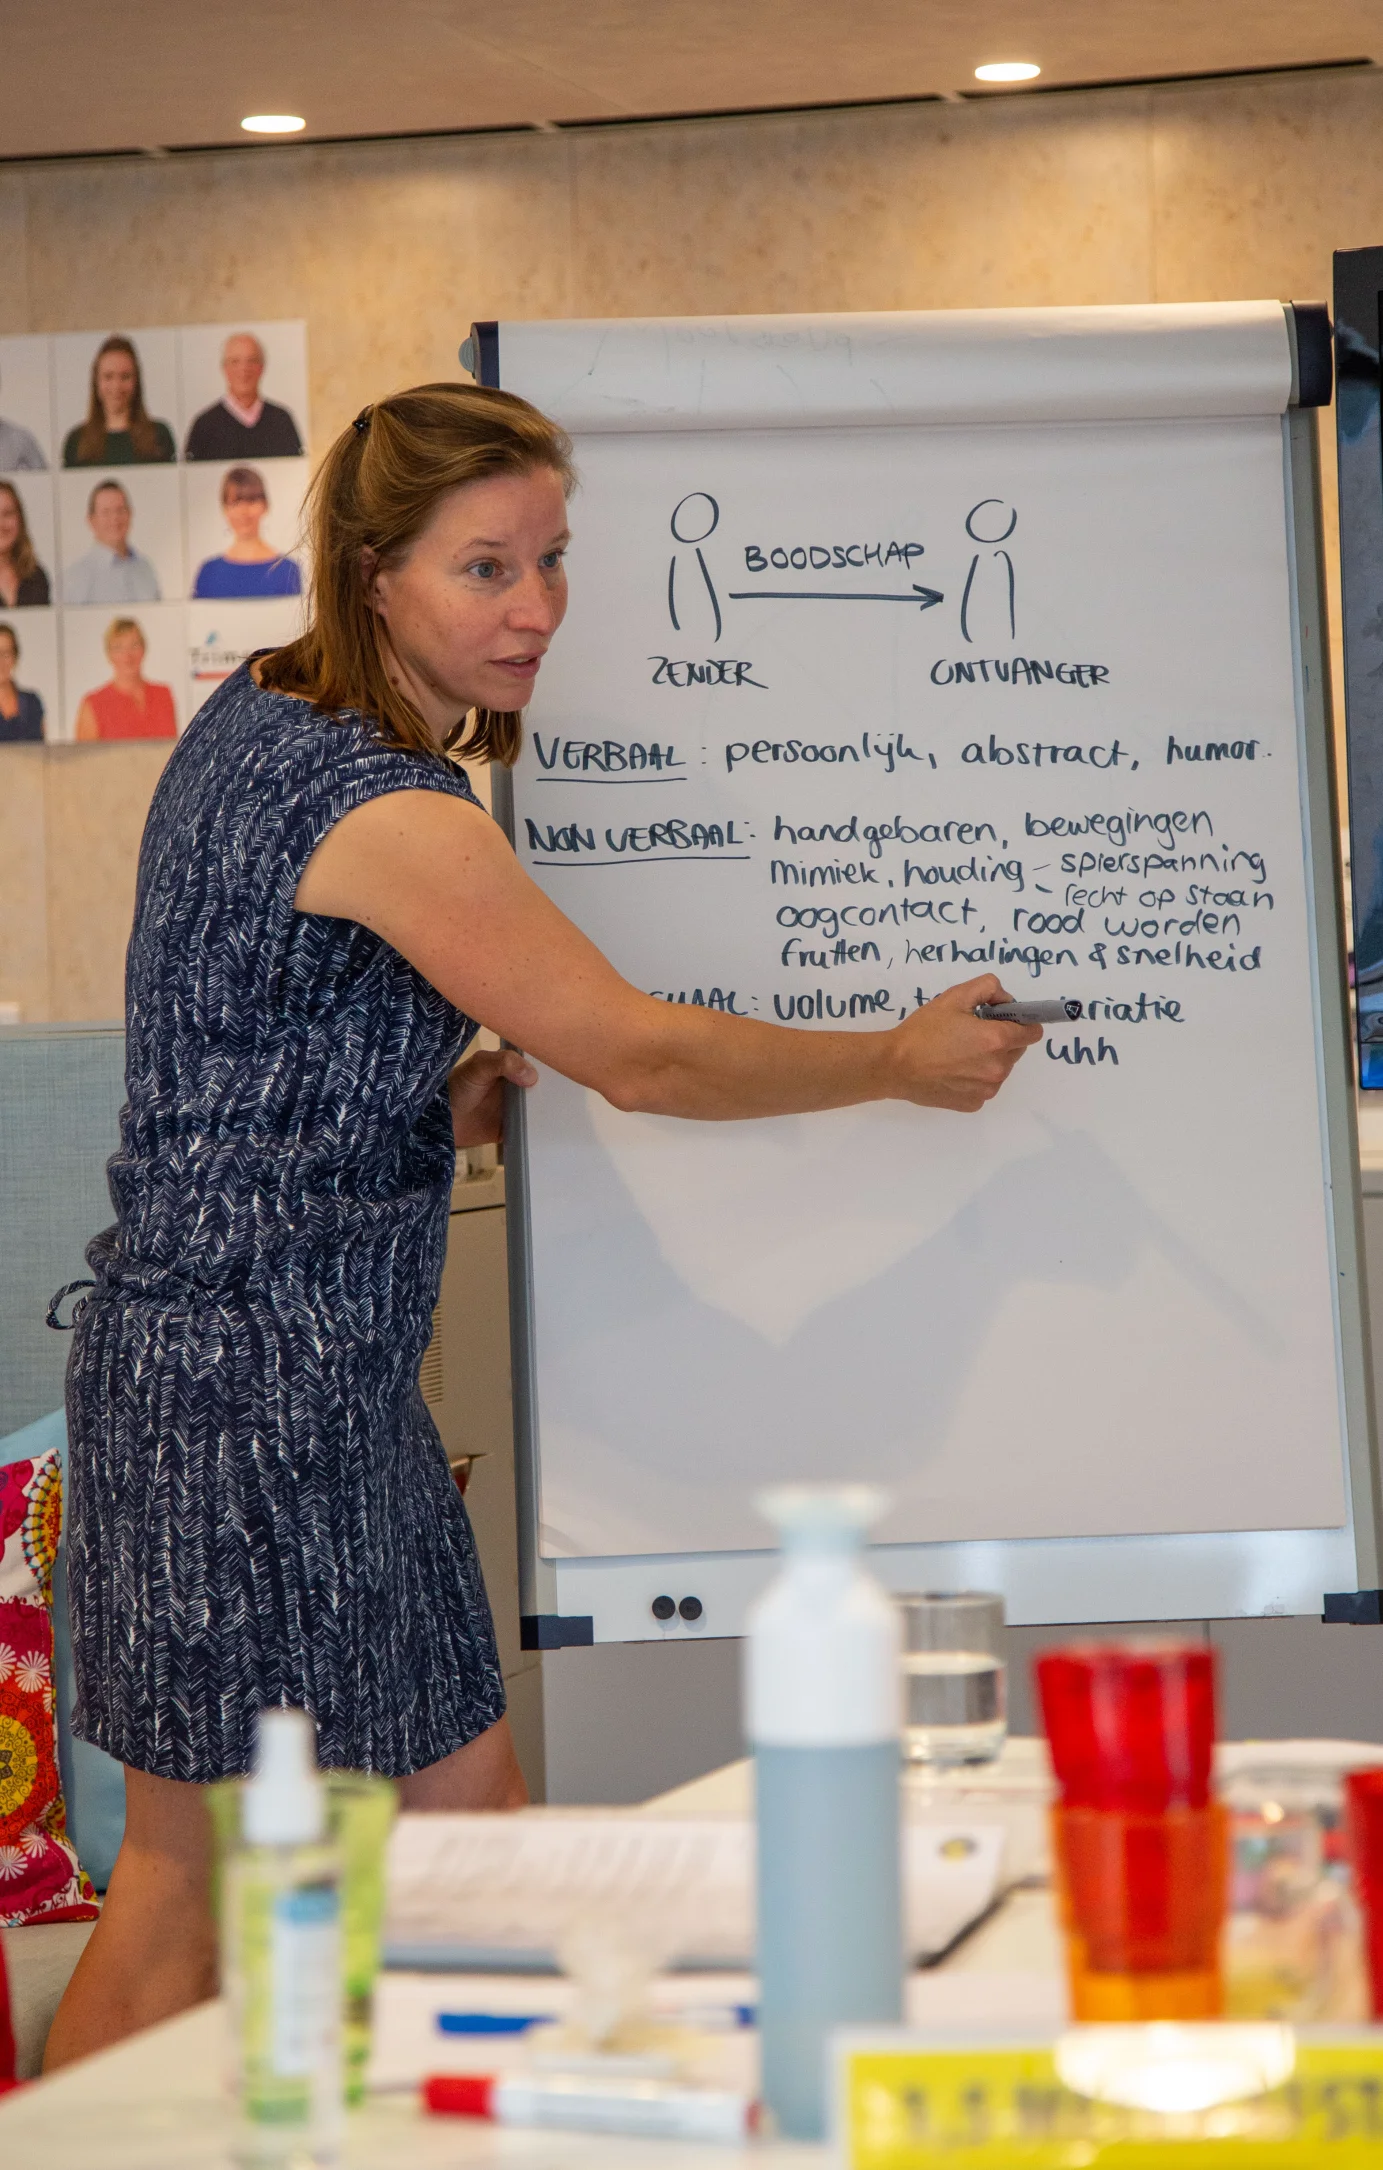 BOODSCHAP
ZENDER ONTVANGER
VERBAAL: persoonlijk, abstract, humor.
NON VERBAAL: handgebaren, bewegingen
mimiek, houding - spierspanning
- recht op staan
oogcontact, rood worden
frutten, herhalingen & snelheid
volume,
uhh